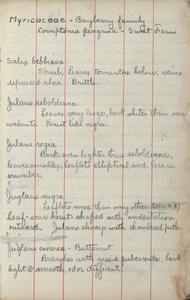 Myricaceae - Bayberry family
Comptonia peregrina - Sweet Fern
Salix bebbiana
Shrub, leaves tomentose below, veins
depressed above. Brittle.
Juglans sieboldiana
Leaves very large, bark whiter than our
walnuts. Fruit like nigra.
Juglans regia
Bark even lighter than sieboldiana,
leaflets elliptical and few in
number.
Juglans nigra
Leaflets more than any other
Leaf-scar heart shaped with indentation
outward. Juglans always with chambered pith
Juglans cinerea - Butternut
Branches with viscid pubescence, bark
light & smooth, odor different.